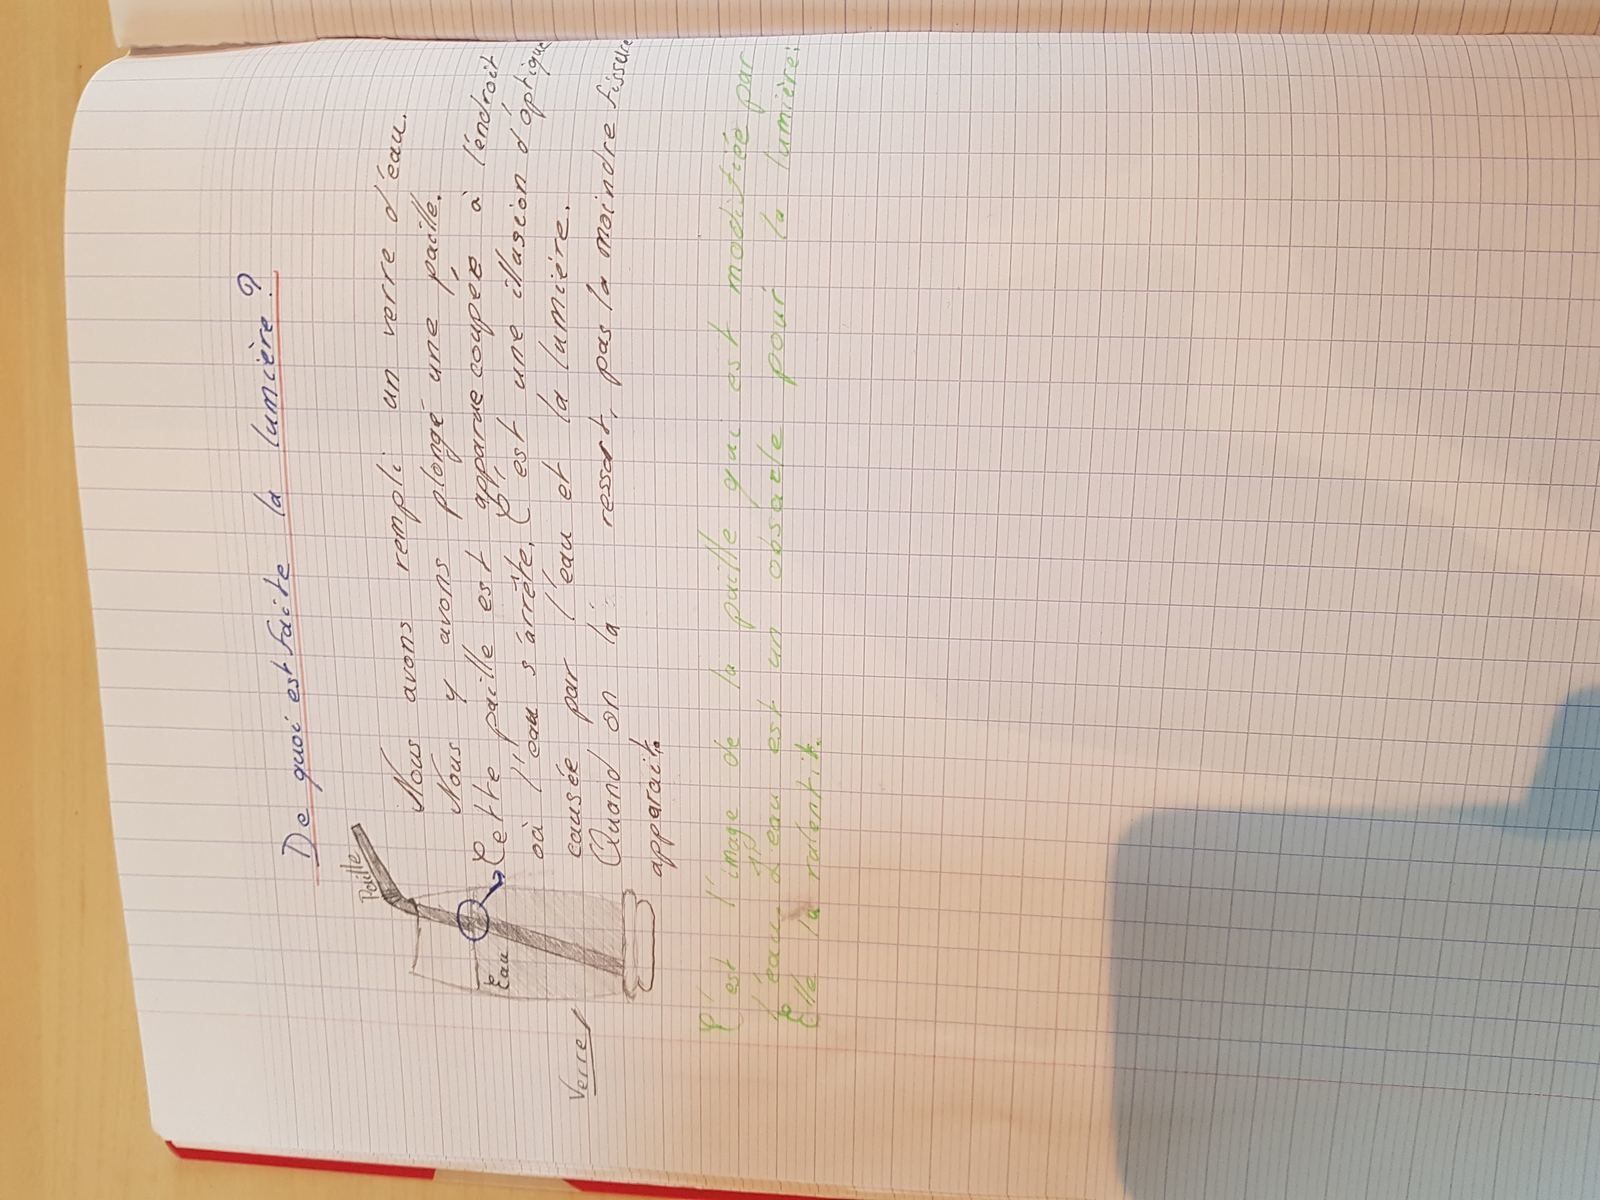 De quoi est faite la lumière ?
Paille
Nous avons rempli un verre d'eau.
Nous y avons plongé une paille.
Cette paille est apparue coupée à l'endroit
où l'eau s'arrête. C'est une illusion d'optique
causée par l'eau et la lumière.
Quand on la ressort, pas la moindre fissure
apparait.
Eau
Verre
C'est l'image de la paille qui est modifiée par
l'eau. L'eau est un obsacle pour la lumière:
Elle la ralentit.